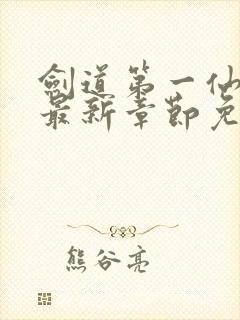 劍道第一仙
最新章節免
熊谷亮